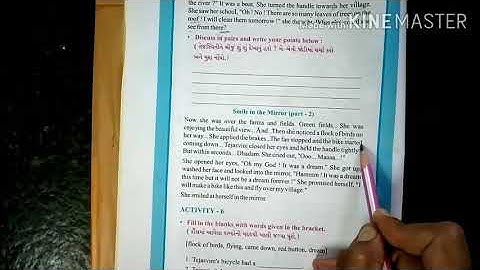 the river ?" It was a boat. She turned the handle towards her village.
She saw her school, "Oh ! No ! There are so many leaves of trees on the
roof ! I will clean them tomorrow !" she
see from there
KINEMASTER
• Discuss in pairs and write your points below :
Smile in the Mirror (part - 2)
Now she was over the farms and fields. Green fields... She was
enjoying the beautiful view... And...Then she noticed a flock of birds on
her way... She applied the brakes...The fan stopped and the bike started
coming down... Tejasvini closed her eyes and held the handle tightly.
But within seconds...Dhadam. She cried out, "Ooo... Maaaa...!"
She opened her eyes, "Oh my God ! It was a dream." She got up,
washed her face and looked into the mirror, "Hummm ! It was a dream
this time but it will not be a dream forever !" She promised herself, "I
will make a bike like this and fly over my village."
She smiled at herself in the mirror.
ACTIVITY - 6
• Fill in the blanks with words given in the bracket.
[flock of birds, flying, came down, red button, dream]
1. Tejasvini's bicycle had a